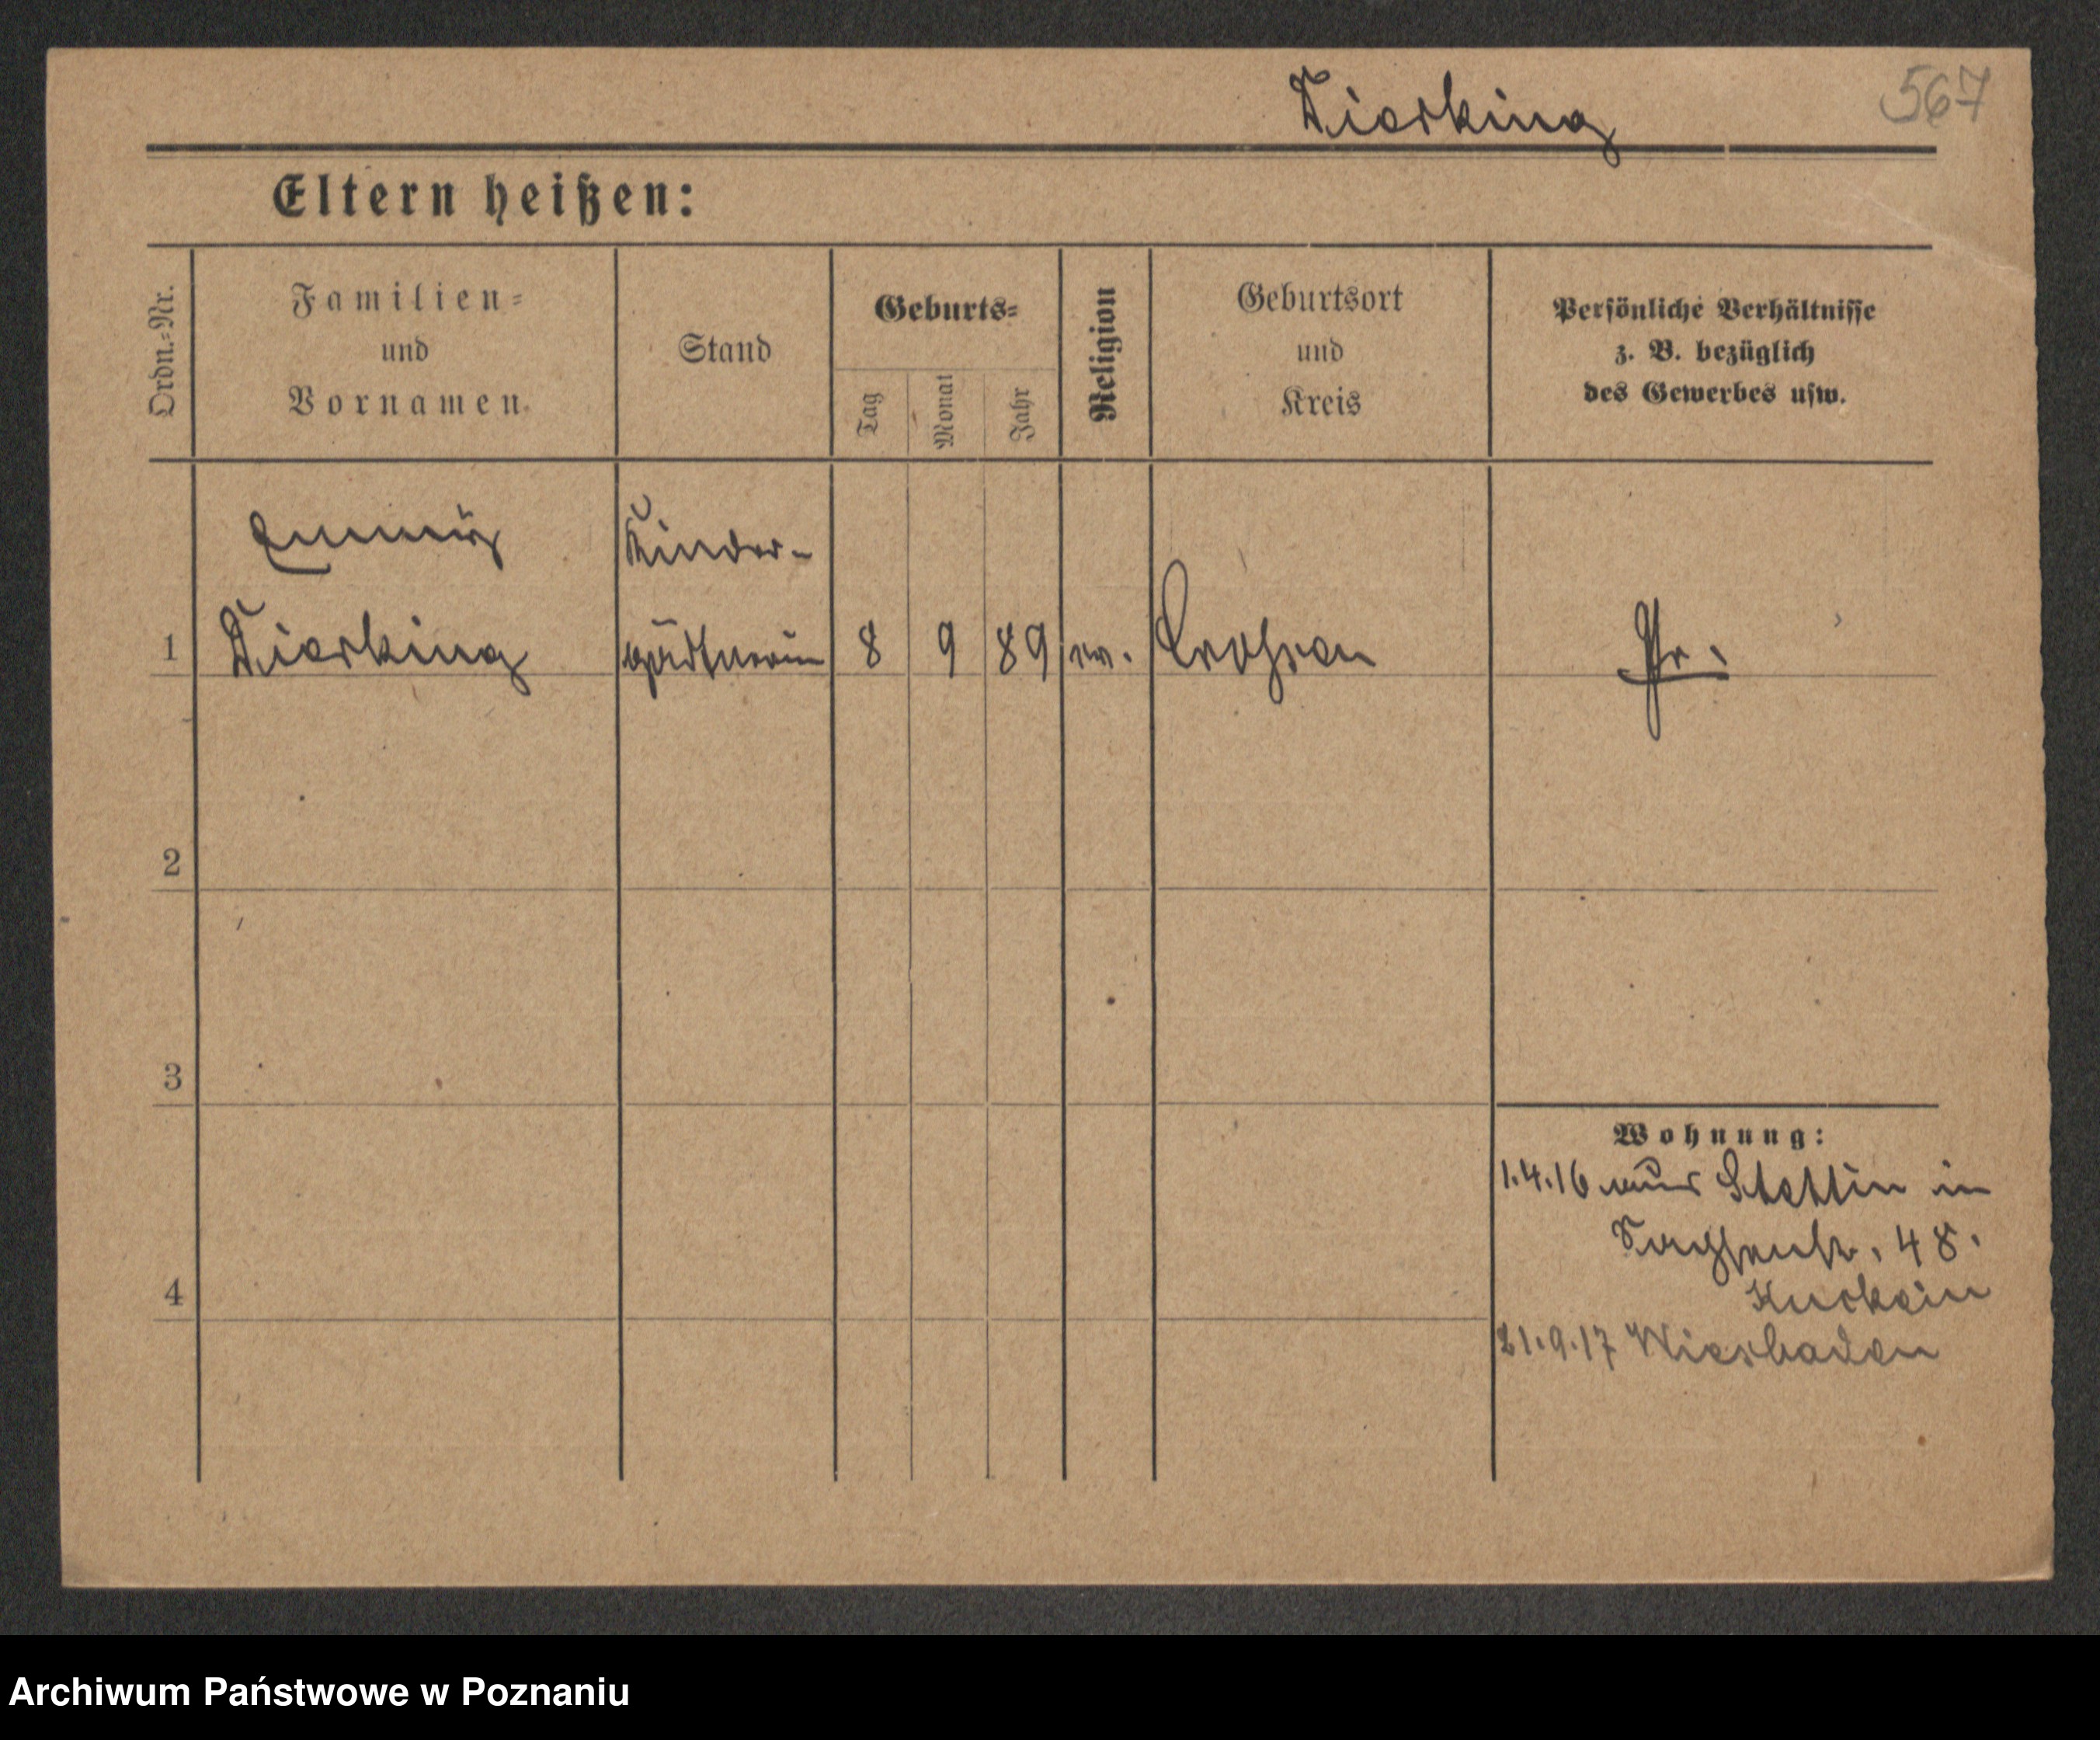 Dierking
567
Eltern heißen:
Ordn.-Nr.
Familien-
und
Vornamen
Stand
Geburts-
Tag
Monat
Jahr
Religion
Geburtsort
und
Kreis
Persönliche Verhältnisse
z. B. bezüglich
des Gewerbes usw.
Kinder-
1 Dierking gärtnerin 8 9 89 ev. Pr.
2
3
4
Wohnung:
1.4.16 aus Stettin in
48.
21.9.17 Wiesbaden
Archiwum Państwowe w Poznaniu